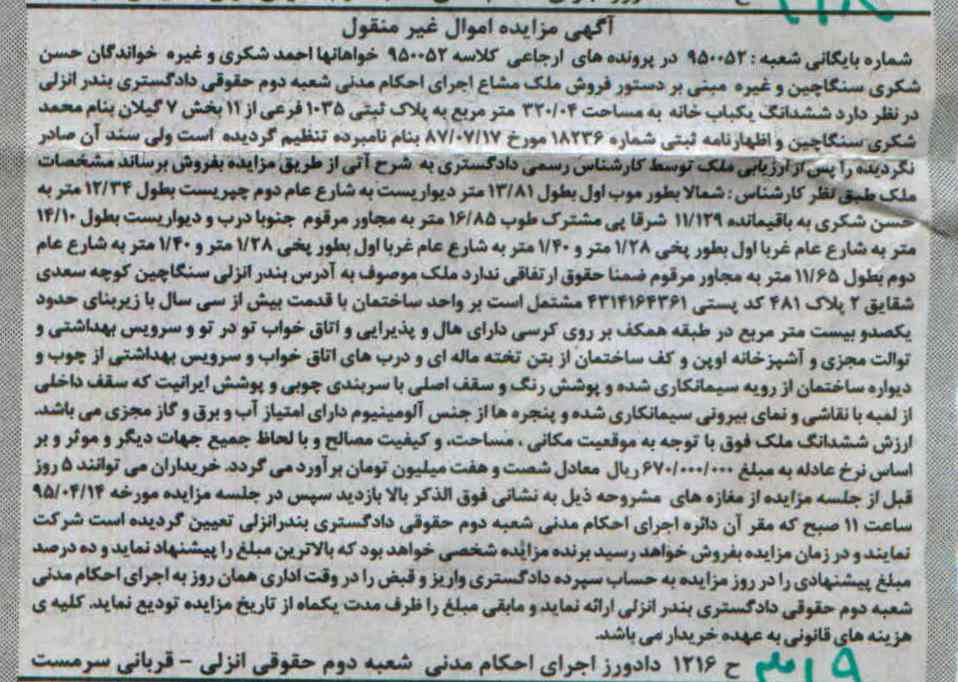 آگهی مزایده اموال غیر منقول
شماره بایگانی شعبه : ۹۵۰۰۵۲ در پرونده های ارجاعی کلاسه ۹۵۰۰۵۲ خواهانها احمد شکری و غیره خواندگان حسن
شکری سنگاچین و غیره مبنی بر دستور فروش ملک مشاع اجرای احکام مدنی شعبه دوم حقوقی دادگستری بندر انزلی
در نظر دارد ششدانگ یکباب خانه به مساحت ۳۲۰/۰۴ متر مربع به پلاک ثبتی ۱۰۳۵ فرعی از ۱۱ بخش ۷ گیلان بنام محمد
شکری سنگاچین و اظهارنامه ثبتی شماره ۱۸۲۳۶ مورخ ۸۷/۰۷/۱۷ بنام نامبرده تنظیم گردیده است ولی سند آن صادر
نگردیده را پس از ارزیابی ملک توسط کارشناس رسمی دادگستری به شرح آتی از طریق مزایده بفروش برساند مشخصات
ملک طبق نظر کارشناس : شمالا بطور موب اول بطول ۱۳/۸۱ متر دیواریست به شارع عام دوم چپریست بطول ۱۲/۳۴ متر به
حسن شکری به باقیمانده ۱۱/۱۲۹ شرقا پی مشترک طوب ۱۶/۸۵ متر به مجاور مرقوم جنوبا درب و دیواریست بطول ۱۴/۱۰
متر به شارع عام غربا اول بطور پخی ۱/۲۸ متر و ۱/۴۰ متر به شارع عام غربا اول بطور پخی ۱/۲۸ متر و ۱/۴۰ متر به شارع عام
دوم بطول ۱۱/۶۵ متر به مجاور مرقوم ضمنا حقوق ارتفاقی ندارد ملک موصوف به آدرس بندر انزلی سنگاچین کوچه سعدی
شقایق ۲ پلاک ۴۸۱ کد پستی ۴۳۱۴۱۶۴۳۶۱ مشتمل است بر واحد ساختمان با قدمت بیش از سی سال با زیربنای حدود
یکصدو بیست متر مربع در طبقه همکف بر روی کرسی دارای هال و پذیرایی و اتاق خواب تو در تو و سرویس بهداشتی و
توالت مجزی و آشپزخانه اوپن و کف ساختمان از بتن تخته ماله ای و درب های اتاق خواب و سرویس بهداشتی از چوب و
دیواره ساختمان از رویه سیمانکاری شده و پوشش رنگ و سقف اصلی با سربندی چوبی و پوشش ایرانیت که سقف داخلی
از لمبه با نقاشی و نمای بیرونی سیمانکاری شده و پنجره ها از جنس آلومینیوم دارای امتیاز آب و برق و گاز مجزی می باشد.
ارزش ششدانگ ملک فوق با توجه به موقعیت مکانی ، مساحت، و کیفیت مصالح و با لحاظ جمیع جهات دیگر و موثر و بر
اساس نرخ عادله به مبلغ ۶۷۰/۰۰۰/۰۰۰ ریال معادل شصت و هفت میلیون تومان برآورد می گردد. خریداران می توانند ۵ روز
قبل از جلسه مزایده از مغازه های مشروحه ذیل به نشانی فوق الذکر بالا بازدید سپس در جلسه مزایده مورخه ۹۵/۰۴/۱۴
ساعت ۱۱ صبح که مقر آن دائره اجرای احکام مدنی شعبه دوم حقوقی دادگستری بندرانزلی تعیین گردیده است شرکت
نمایند و در زمان مزایده بفروش خواهد رسید برنده مزایده شخصی خواهد بود که بالاترین مبلغ را پیشنهاد نماید و ده درصد
مبلغ پیشنهادی را در روز مزایده به حساب سپرده دادگستری واریز و قبض را در وقت اداری همان روز به اجرای احکام مدنی
شعبه دوم حقوقی دادگستری بندر انزلی ارائه نماید و مابقی مبلغ را ظرف مدت یکماه از تاریخ مزایده تودیع نماید. کلیه ی
هزینه های قانونی به عهده خریدار می باشد.
ح ۱۲۱۶ دادورز اجرای احکام مدنی شعبه دوم حقوقی انزلی - قربانی سرمست